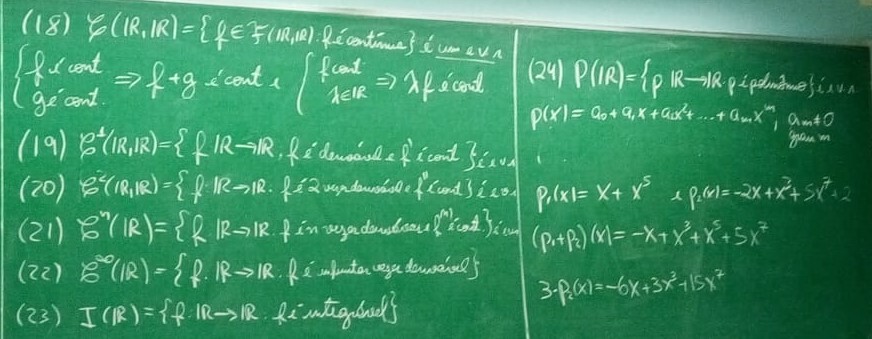 (18) C(IR,IR)={f∈F(IR,IR): f é contínua} é um e.v.r
{ f é cont g é cont. ⇒ f+g é cont e { f cont λ∈IR ⇒ λf é cont
(19) C¹(IR,IR)={f IR→IR. f é derivável e f' é cont} é e.v.r
(20) C²(IR,IR)={f: IR→IR. f é 2 vezes derivável e f'' é cont} é e.v.
(21) Cⁿ(IR)={f IR→IR. f é n vezes derivável e f⁽ⁿ⁾ é cont.} é
(22) C^∞(IR)={f. IR→IR. f é infinitas vezes derivável}
(23) I(IR)={f: IR→IR. f é integrável}
(24) P(IR)={p IR→IR. p é polinômio} é e.v.r.
p(x)= a₀+a₁x+a₂x²+...+aₘxᵐ, aₘ≠0
grau m
p₁(x)= x+x⁵ e p₂(x)=-2x+x³+5x⁷
(p₁+p₂)(x)=-x+x³+x⁵+5x⁷
3·p₂(x)=-6x+3x³+15x⁷